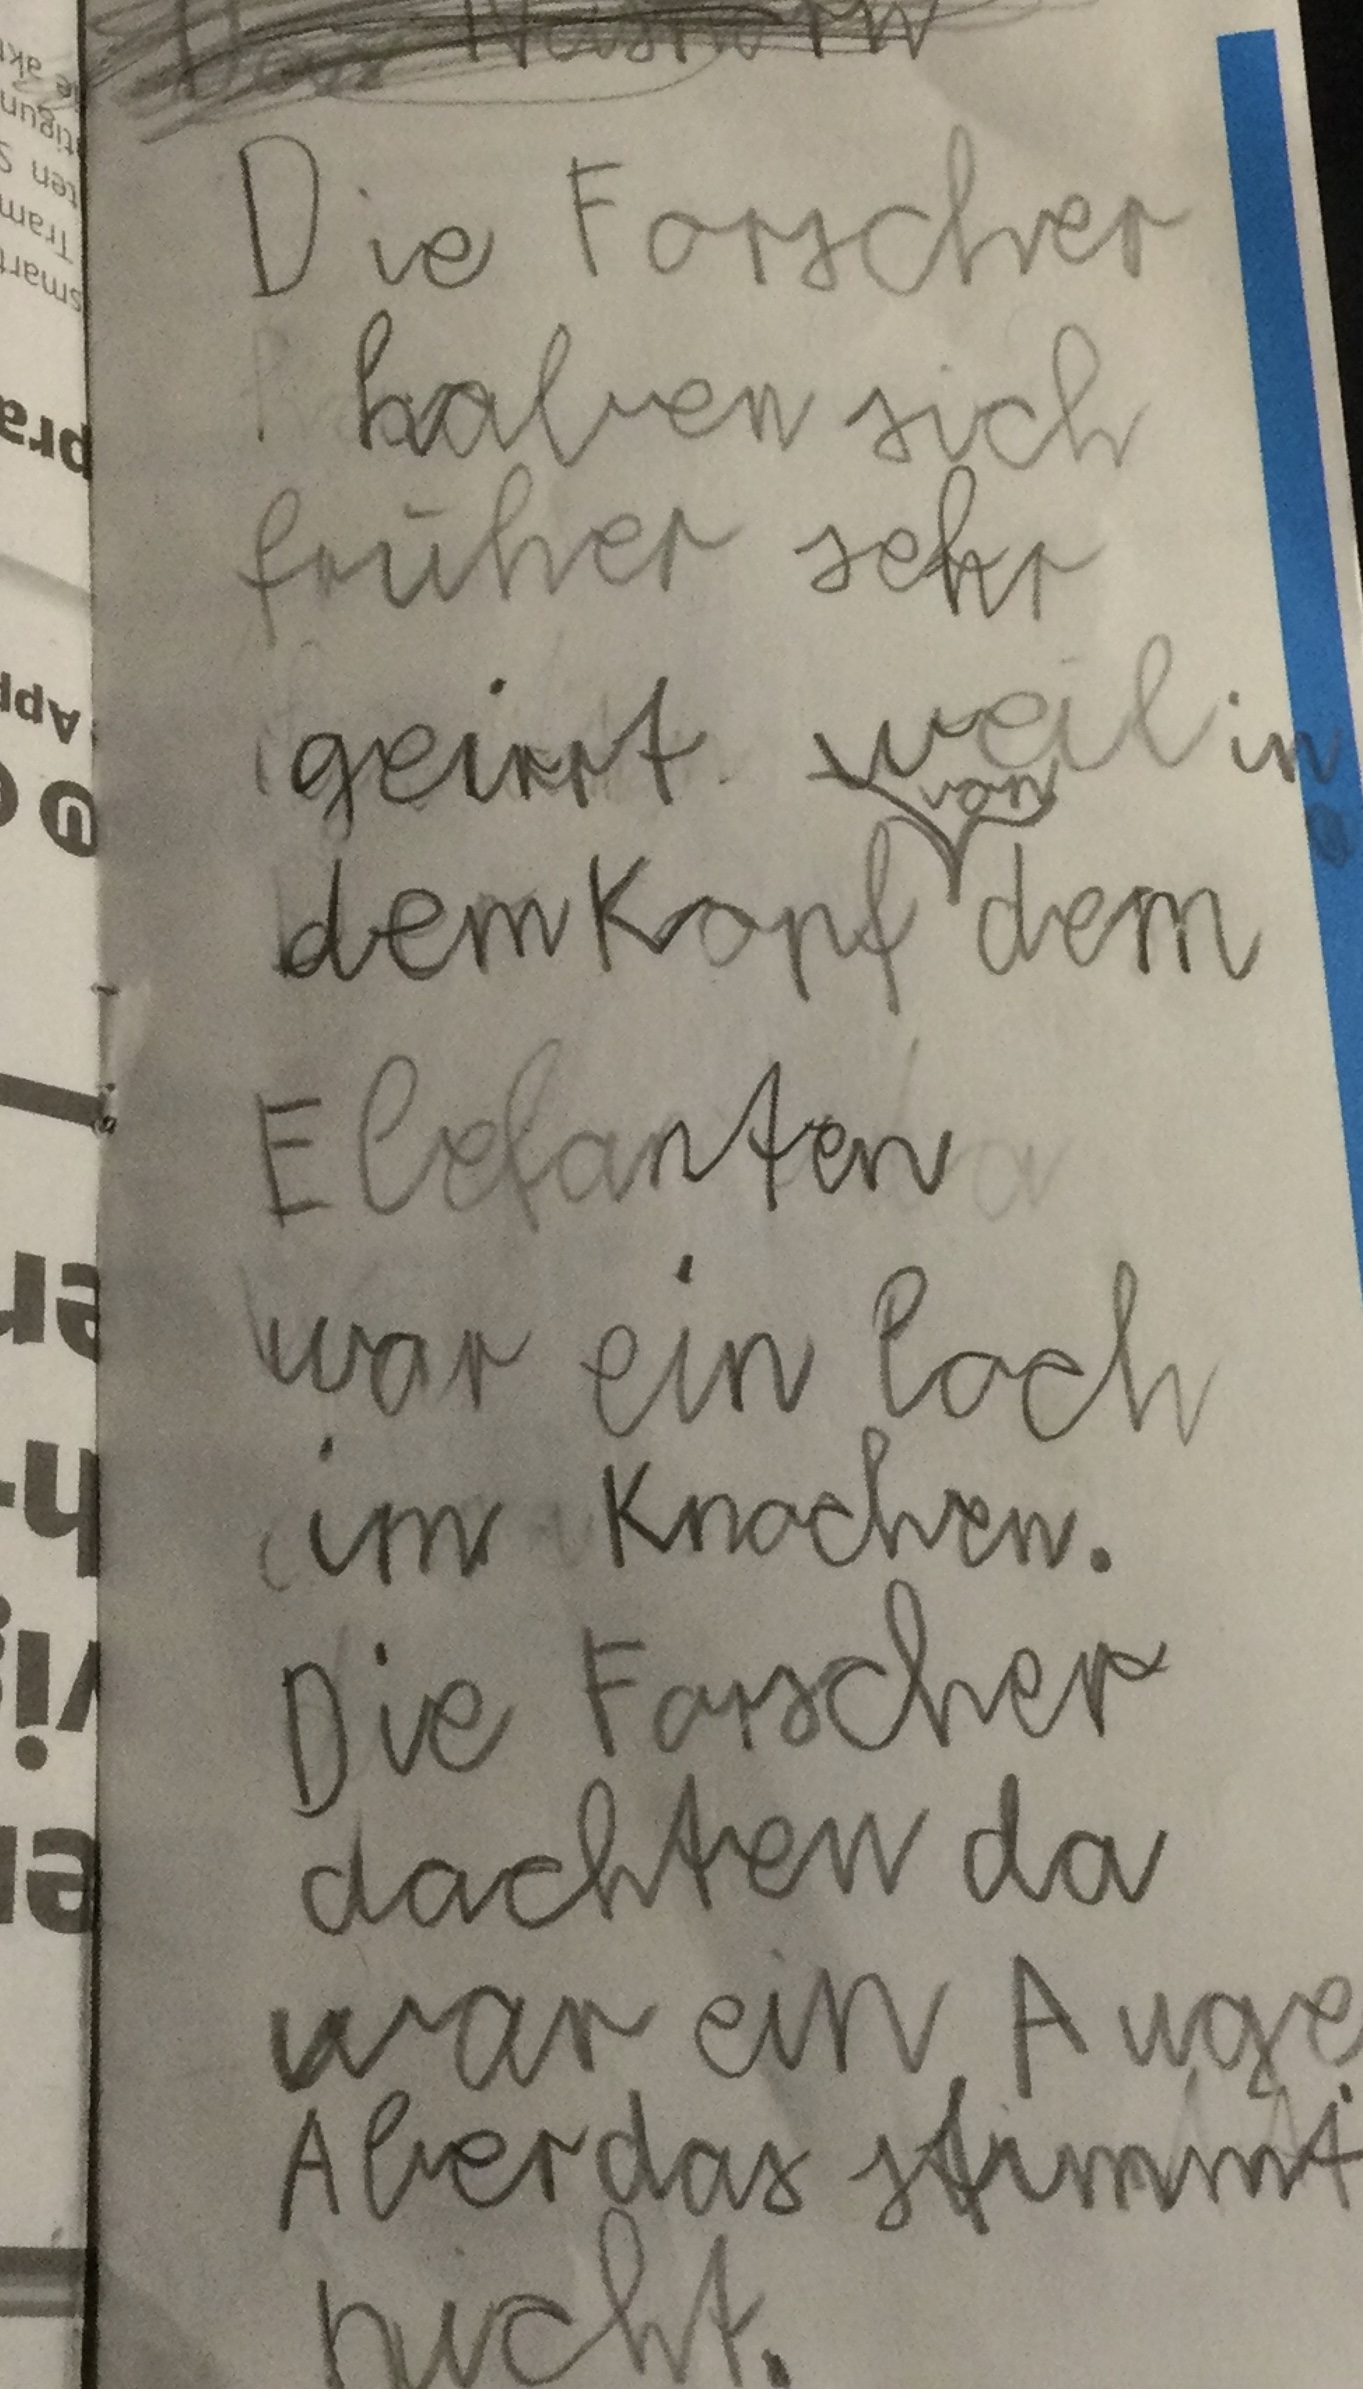 Das Nashorn
Die Forscher
haben sich
früher sehr
geirrt weil in
dem Kopf von dem
Elefanten
war ein loch
im Knochen.
Die Forscher
dachten da
war ein Auge.
Aber das stimmt
nicht.